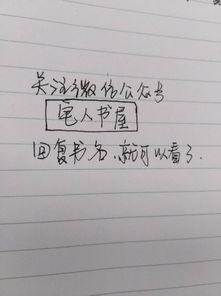 关注微信公众号
宅人书屋
回复书名,就可以看了.